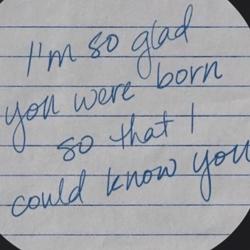 I'm so glad
you were born
so that I
could know you